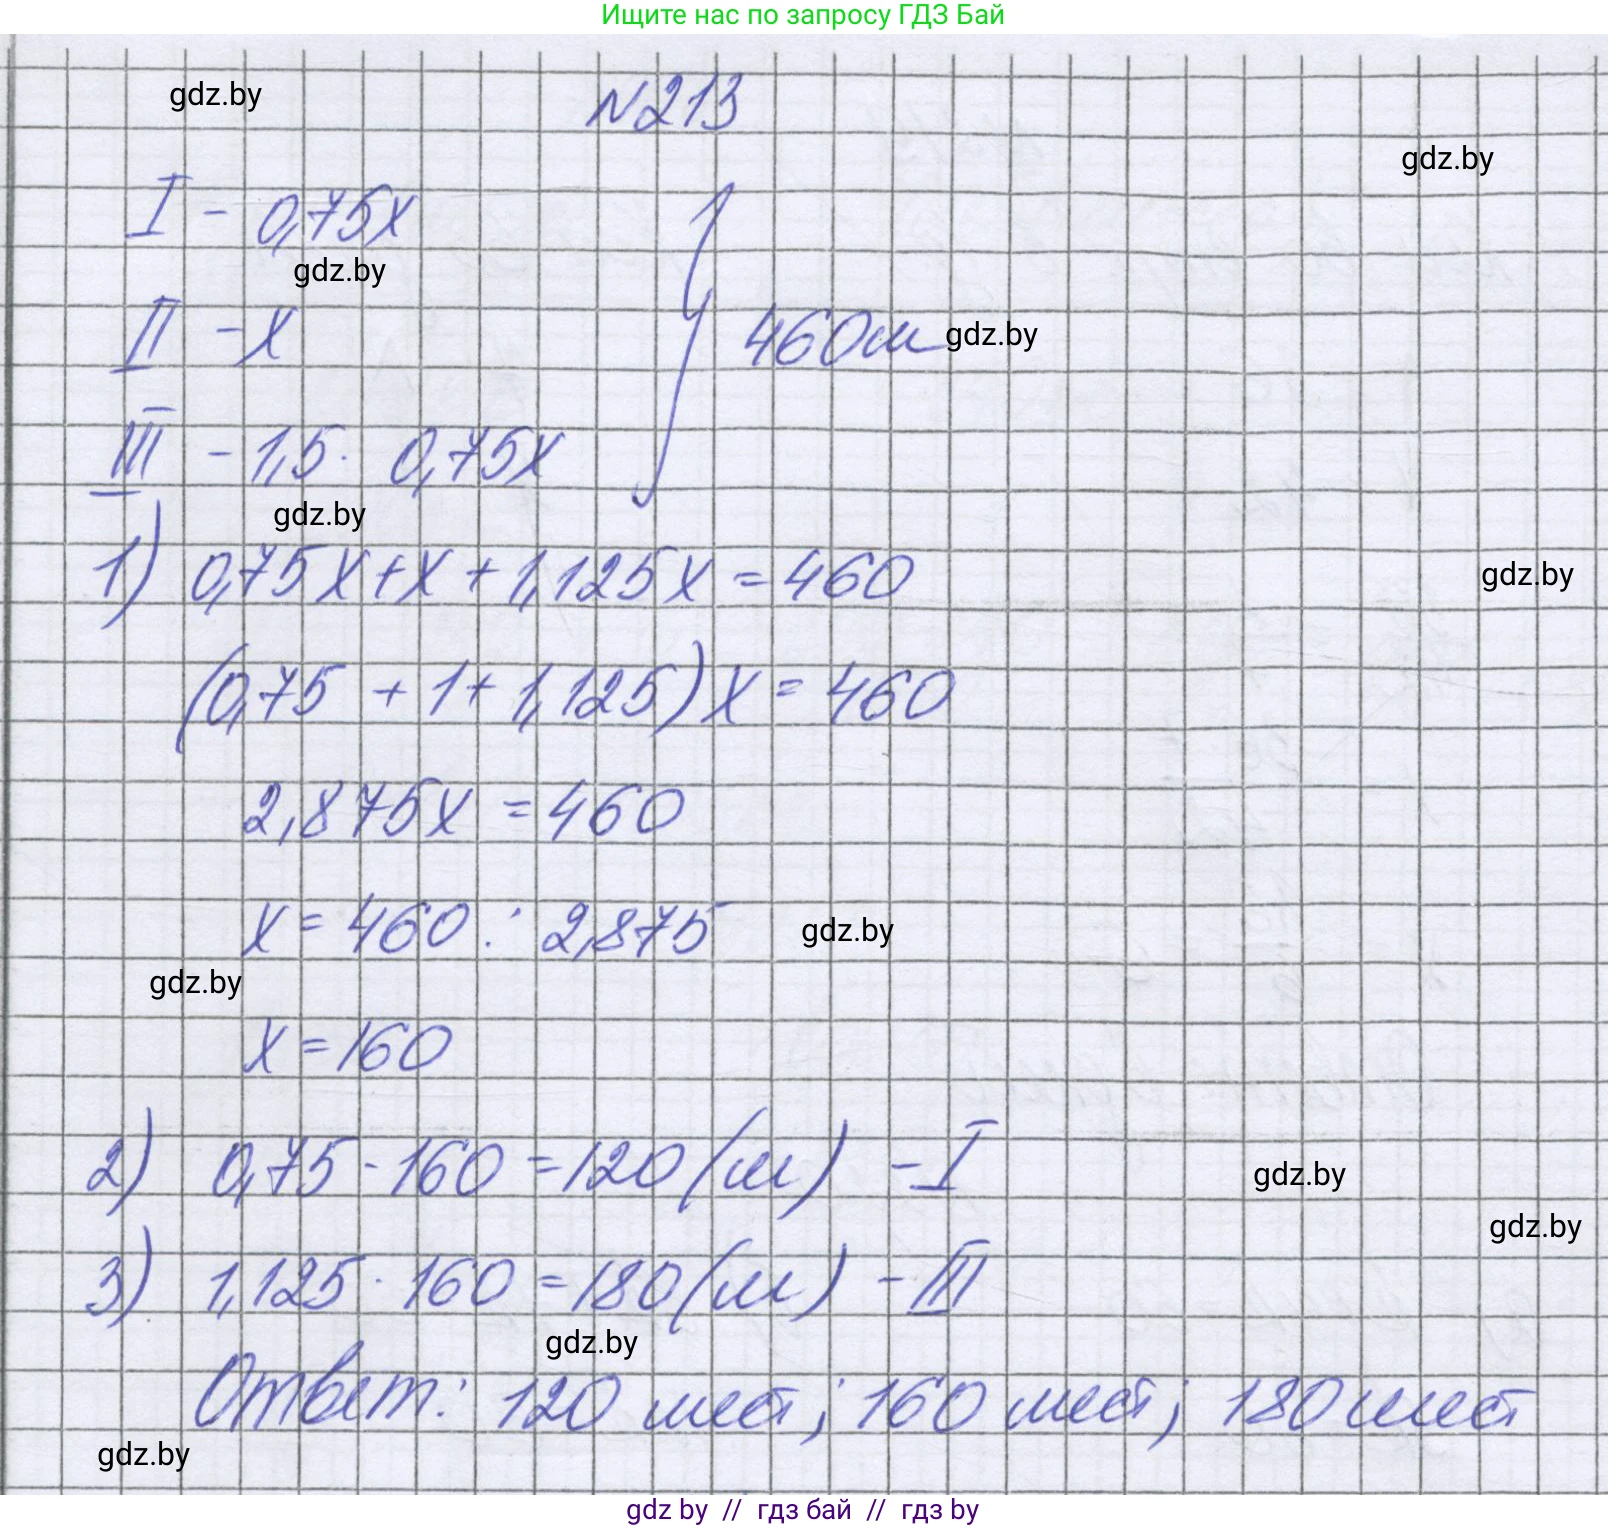 Ищите нас по запросу ГДЗ Бай
gdz.by
N213
gdz.by
I - 0,75x
gdz.by
II - x
460м
gdz.by
III - 1,5 · 0,75x
gdz.by
1) 0,75x + x + 1,125x = 460
gdz.by
(0,75 + 1 + 1,125) x = 460
2,875x = 460
x = 460 : 2,875
gdz.by
gdz.by
x = 160
2) 0,75 · 160 = 120 (м) - I
gdz.by
gdz.by
3) 1,125 · 160 = 180 (м) - III
gdz.by
Ответ: 120 мест; 160 мест; 180 мест
gdz.by
gdz by // гдз бай // гдз by